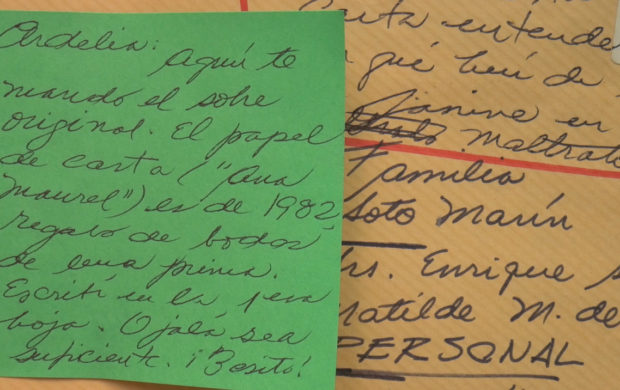 Ardelia:
Aquí te
mando el sobre
original. El papel
de carta ("Ana
Maurel") es de 1982,
regalo de bodas
de una prima.
Escribí en la 1era
hoja. Ojalá sea
suficiente. ¡Besito!
entender
qué
en
maltrato
Familia
Soto Marín
Enrique
Matilde M. de
PERSONAL